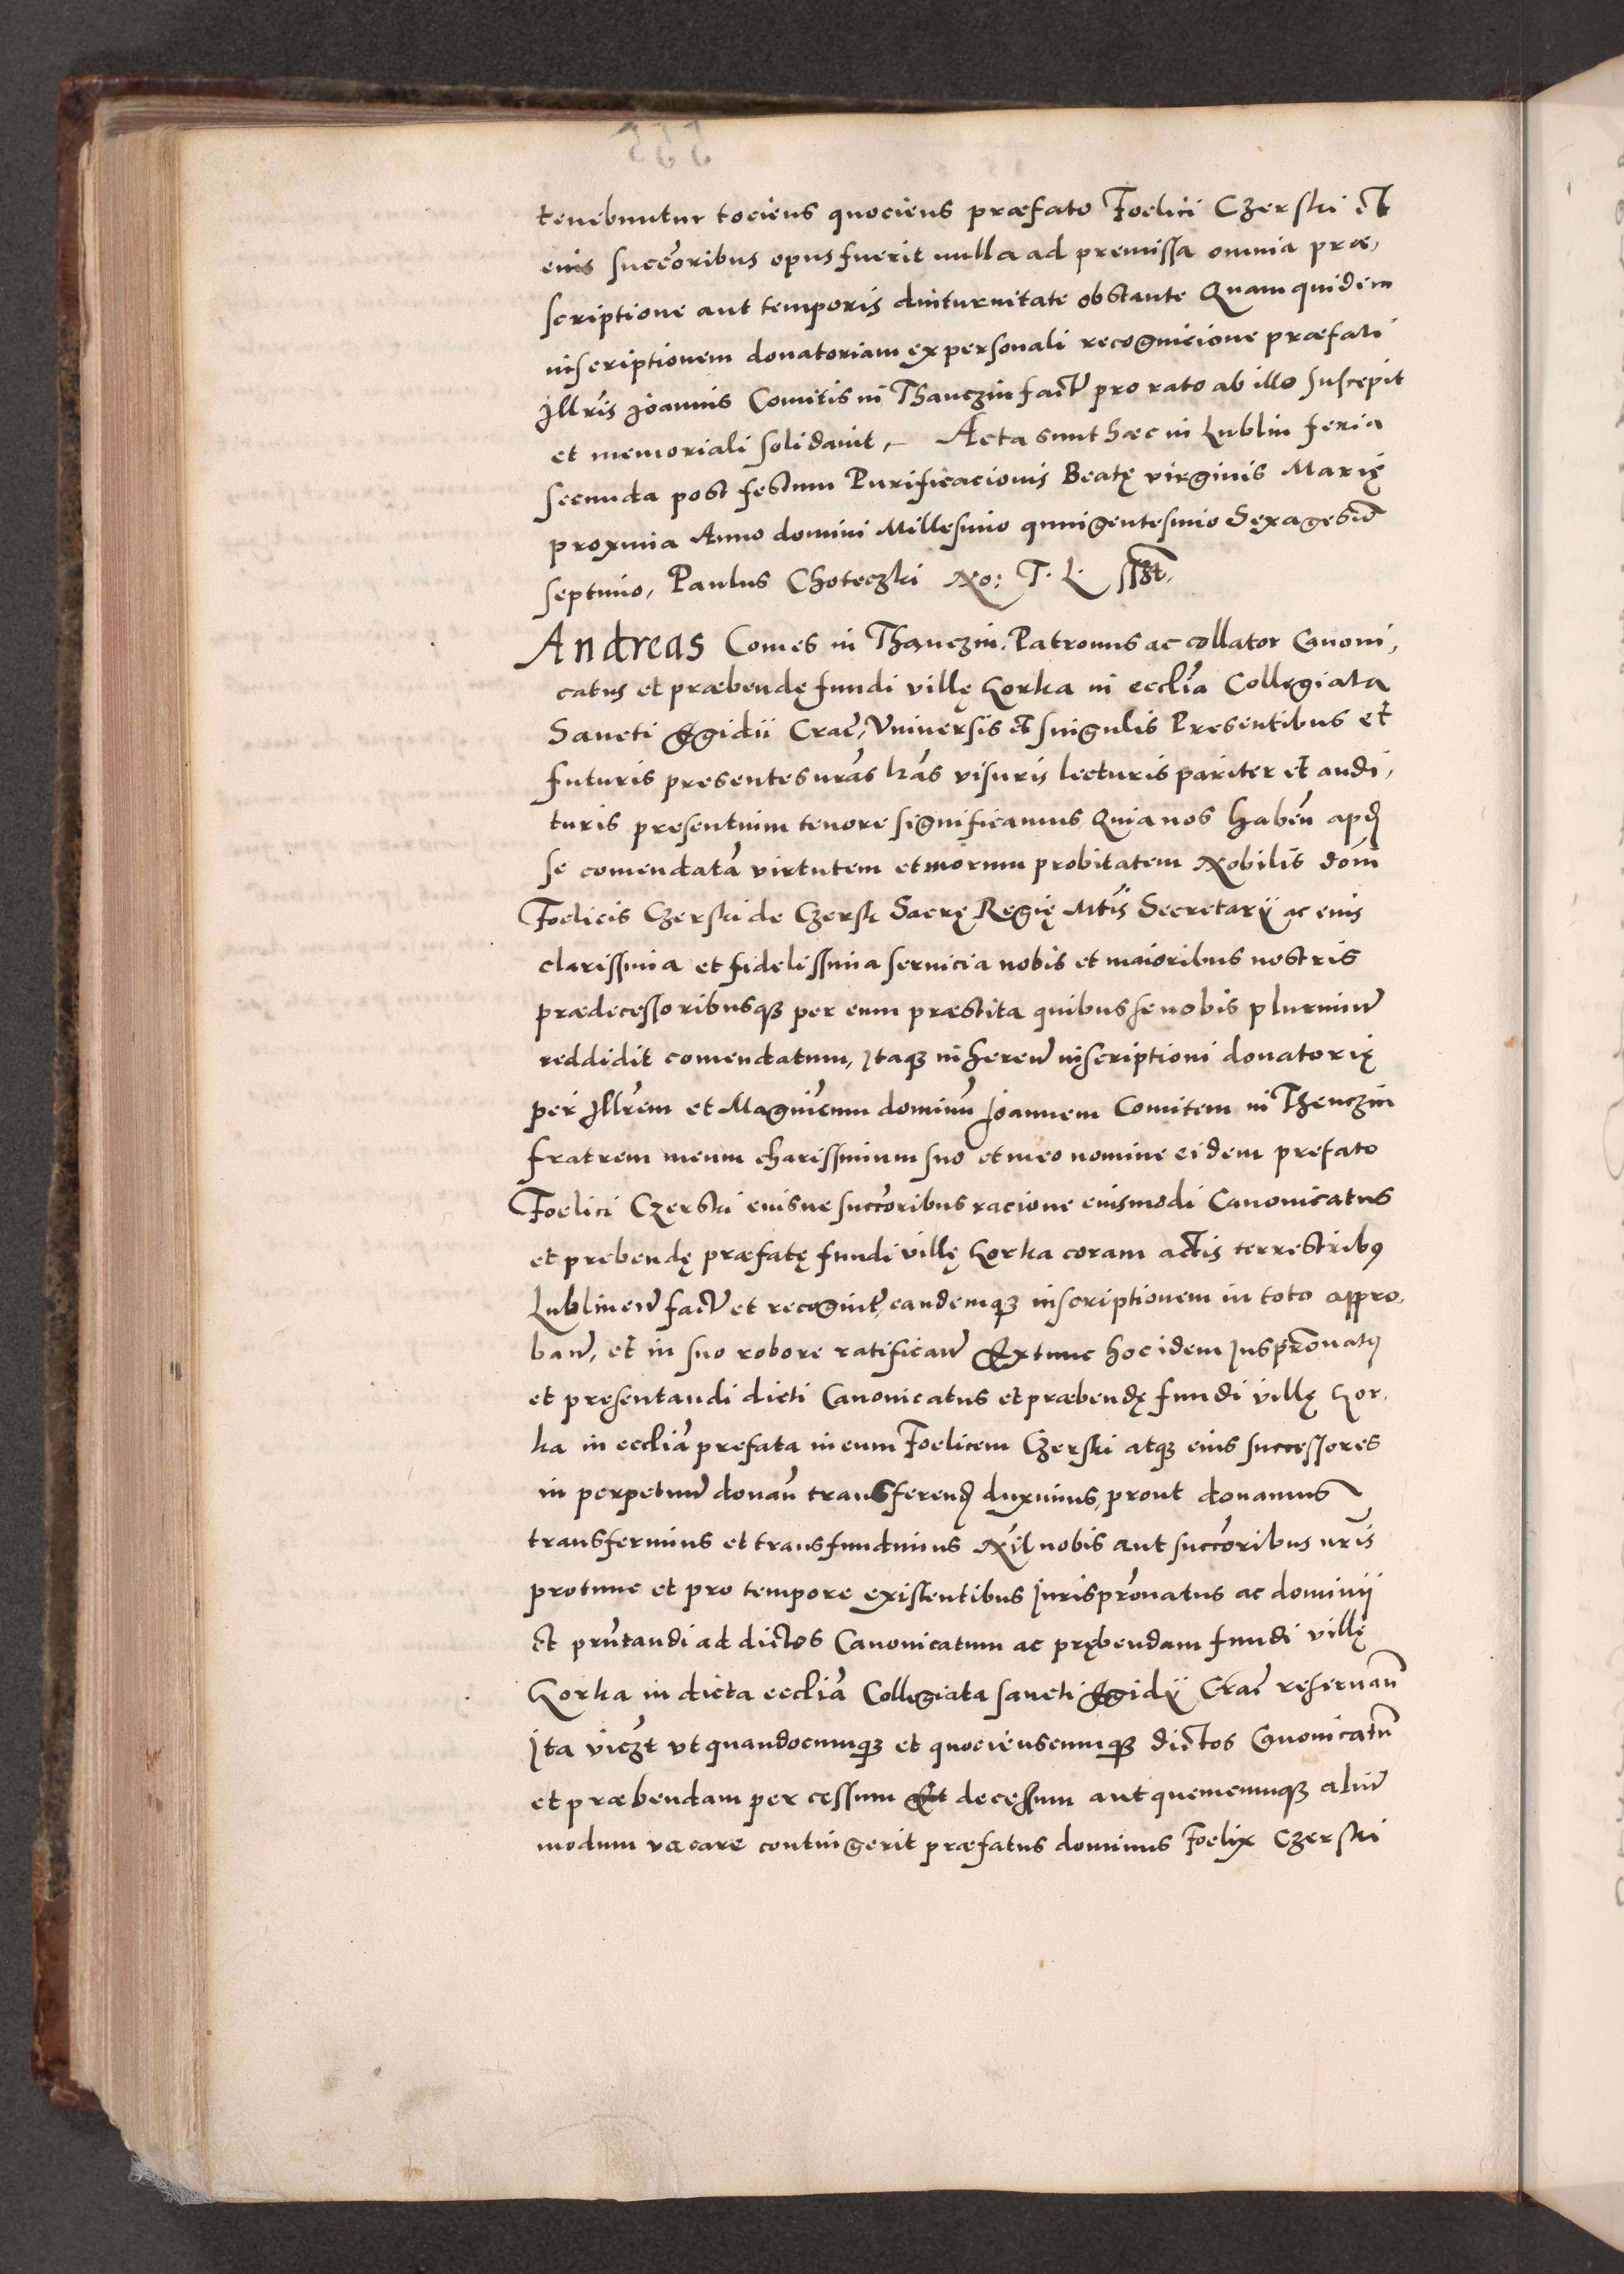 tenebuntur tociens quociens præfato Foelici Czerski et
eius succẽoribus opus fuerit nulla ad premissa omnia præ,
scriptione aut temporis diuturnitate obstante Quam quidem
inscriptionem donatoriam ex personali recognicione præfati
Illr̃is Joannis Comitis in Thanczin fact̃ pro rato ab illo suscepit
et memoriali solidauit, Acta sunt hæc in Lublin feria
secunda post festum Purificacionis Beatę virginis Marię
proxima Anno domini Millesimo quingentesimo Sexagesim̃
septimo, Paulus Choteczki No: T. L. sszt.
Andreas Comes in Thanczin. Patronus ac collator Canoni,
catus et præbendę fundi villę Gorka in ecclĩa Collegiata
Sancti Egidii Crac̃, Vniversis et singulis Presentibus et
futuris presentes nr̃as lr̃as visuris lecturis pariter et audi,
turis presentium tenore significamus Quia nos haben̄ apd
se comendatã virtutem et morum probitatem Nobilis doñi
Foelicis Czerski de Czersk Sacrę Regię Mtĩs Secretarii ac eius
clarissima et fidelissima seruicia nobis et maioribus nostris
prædecessoribusqȝ per eum præstita quibus se nobis plurimum̃
reddidit comendatum, Itaqȝ inheren̄ inscriptioni donatorię
per Illr̃em et Magnĩcum dominũ Joannem Comitem in Thenczin
fratrem meum charissimum suo et meo nomine eidem prefato
Foelici Czerski eiusue succõribus racione eiusmodi Canonicatus
et prebendę præfatę fundi villę Gorka coram actis terrestribꝰ
Lublinen̄ fact̃ et recognit̃, eandemqȝ inscriptionem in toto appro,
ban̄, et in suo robore ratifican̄ Extunc hoc idem Juspr̃onatꝰ
et pręsentandi dicti Canonicatus et præbendę fundi villę Gor,
ka in ecclĩa prefata in eum Foelicem Czerski atqȝ eius successores
in perpetuum̃ donan̄ transferend duximus, prout donamus
transferimus et transfundimus Nil nobis aut succõribus nr̃is
protunc et pro tempore existentibus Jurispr̃onatus ac dominii
et prñtandi ad dictos Canonicatum ac prębendam fundi villę
Gorka in dicta ecclĩa Collegiata sancti Egidii Crac̃ reseruan̄
Ita viczt vt quandocumqȝ et quocienscumqȝ dictos Canonicatũ
et præbendam per cessum et decessum aut quemcumqȝ alium̃
modum vacare contingerit præfatus dominus Foelix Czerski